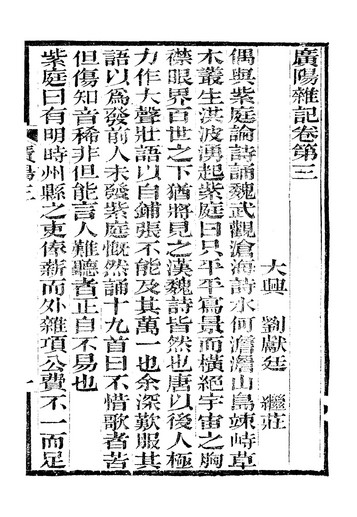 廣陽雜記卷第三
大興 劉獻廷 繼莊
偶與紫庭論詩誦魏武觀滄海詩水何澹澹山島竦峙草
木叢生洪波湧起紫庭曰只平平寫景而橫絕宇宙之胸
襟眼界百世之下猶將見之漢魏詩皆然也唐以後人極
力作大聲壯語以自鋪張不能及其萬一也余深歎服其
語以爲發前人未發紫庭慨然誦十九首曰不惜歌者苦
但傷知音稀非但能言人難聽者正自不易也
紫庭曰有明時州縣之吏俸薪而外雜項公費不一而足
廣陽三
一